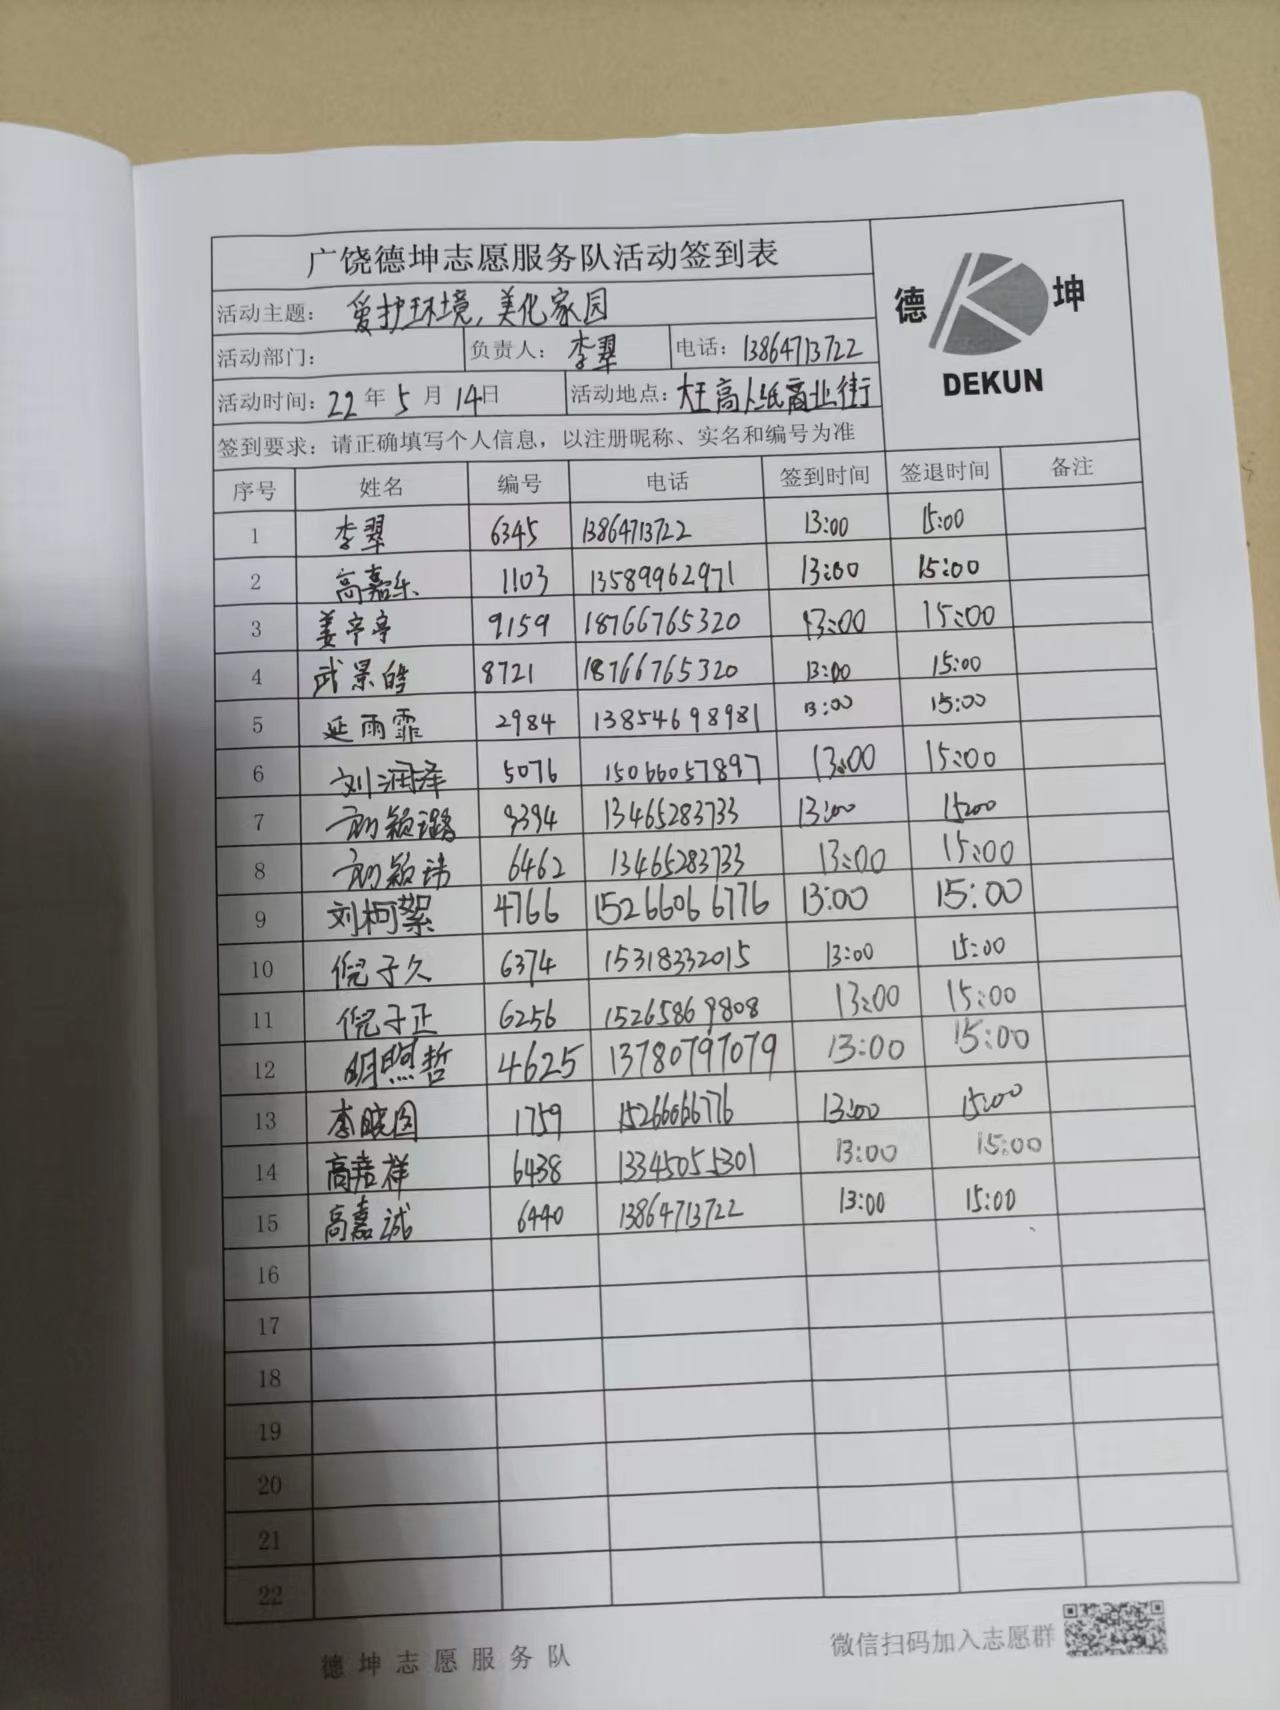 广饶德坤志愿服务队活动签到表
德 坤
DEKUN
活动主题： 爱护环境，美化家园
活动部门： 负责人： 李翠 电话： 13864713722
活动时间： 22 年 5 月 14 日 活动地点： 大王高人纸商业街
签到要求：请正确填写个人信息，以注册昵称、实名和编号为准
序号 姓名 编号 电话 签到时间 签退时间 备注
1 李翠 6345 13864713722 13:00 15:00
2 高嘉乐 1103 13589962971 13:00 15:00
3 姜亭亭 9159 18766765320 13:00 15:00
4 武景皓 8721 18766765320 13:00 15:00
5 延雨霏 2984 13854698981 13:00 15:00
6 刘润泽 5076 15066057897 13:00 15:00
7 颖璐 9394 13465283733 13:00 15:00
8 颖玮 6462 13465283733 13:00 15:00
9 刘柯絮 4766 15266066776 13:00 15:00
10 倪子久 6374 15318332015 13:00 15:00
11 倪子正 6256 15265869808 13:00 15:00
12 明照哲 4625 13780797079 13:00 15:00
13 李晓图 1759 15266066776 13:00 15:00
14 高嘉祥 6438 13345055301 13:00 15:00
15 高嘉诚 6440 13864713722 13:00 15:00
16
17
18
19
20
21
22
德坤志愿服务队 微信扫码加入志愿群